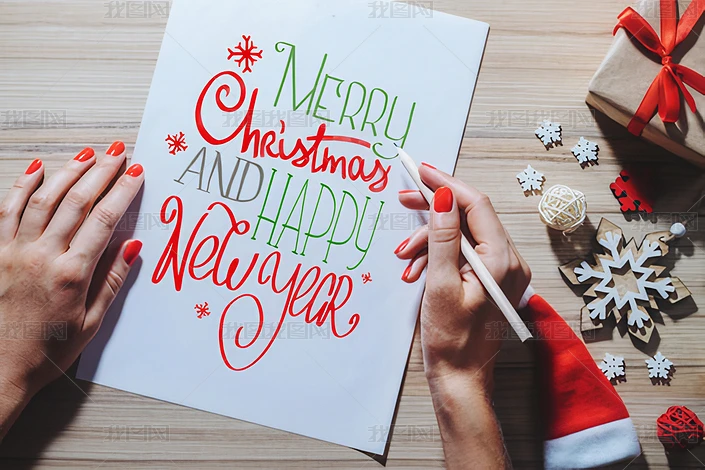 MERRY
Christmas
AND HAPPY
New Year
我图网